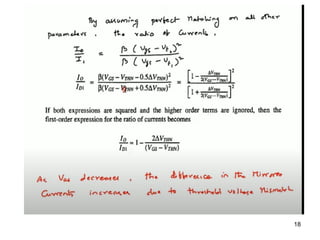 By assuming perfect Matching on all other
parameters, the ratio of Currents,
Io / I1 = β (Vgs - Vt0)² / β (Vgs - Vt1)²
IO / IDI = β(VGS − VTHN − 0.5ΔVTHN)² / β(VGS − VTHN + 0.5ΔVTHN)² = [1 − ΔVTHN / 2(VGS − VTHN)]² / [1 + ΔVTHN / 2(VGS − VTHN)]²
If both expressions are squared and the higher order terms are ignored, then the
first-order expression for the ratio of currents becomes
IO / IDI = 1 − 2ΔVTHN / (VGS − VTHN)
As VGS decreases, the difference in the Mirrored
Currents increases due to threshold voltage Mismatch
18